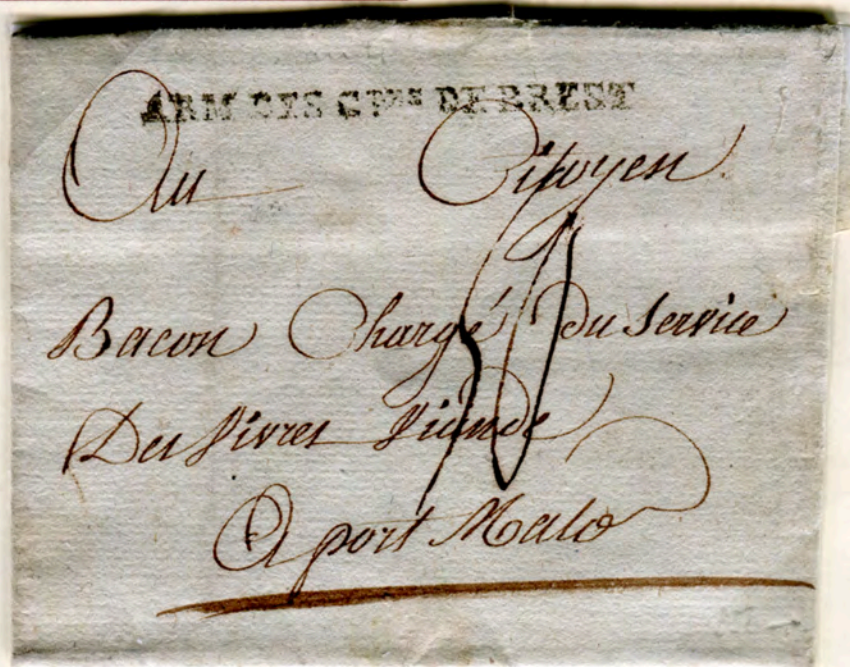 ARM. DES CTES DE BREST
Au Citoyen
Bacon Chargé du Service
Des Vivres Viande
A port Malo